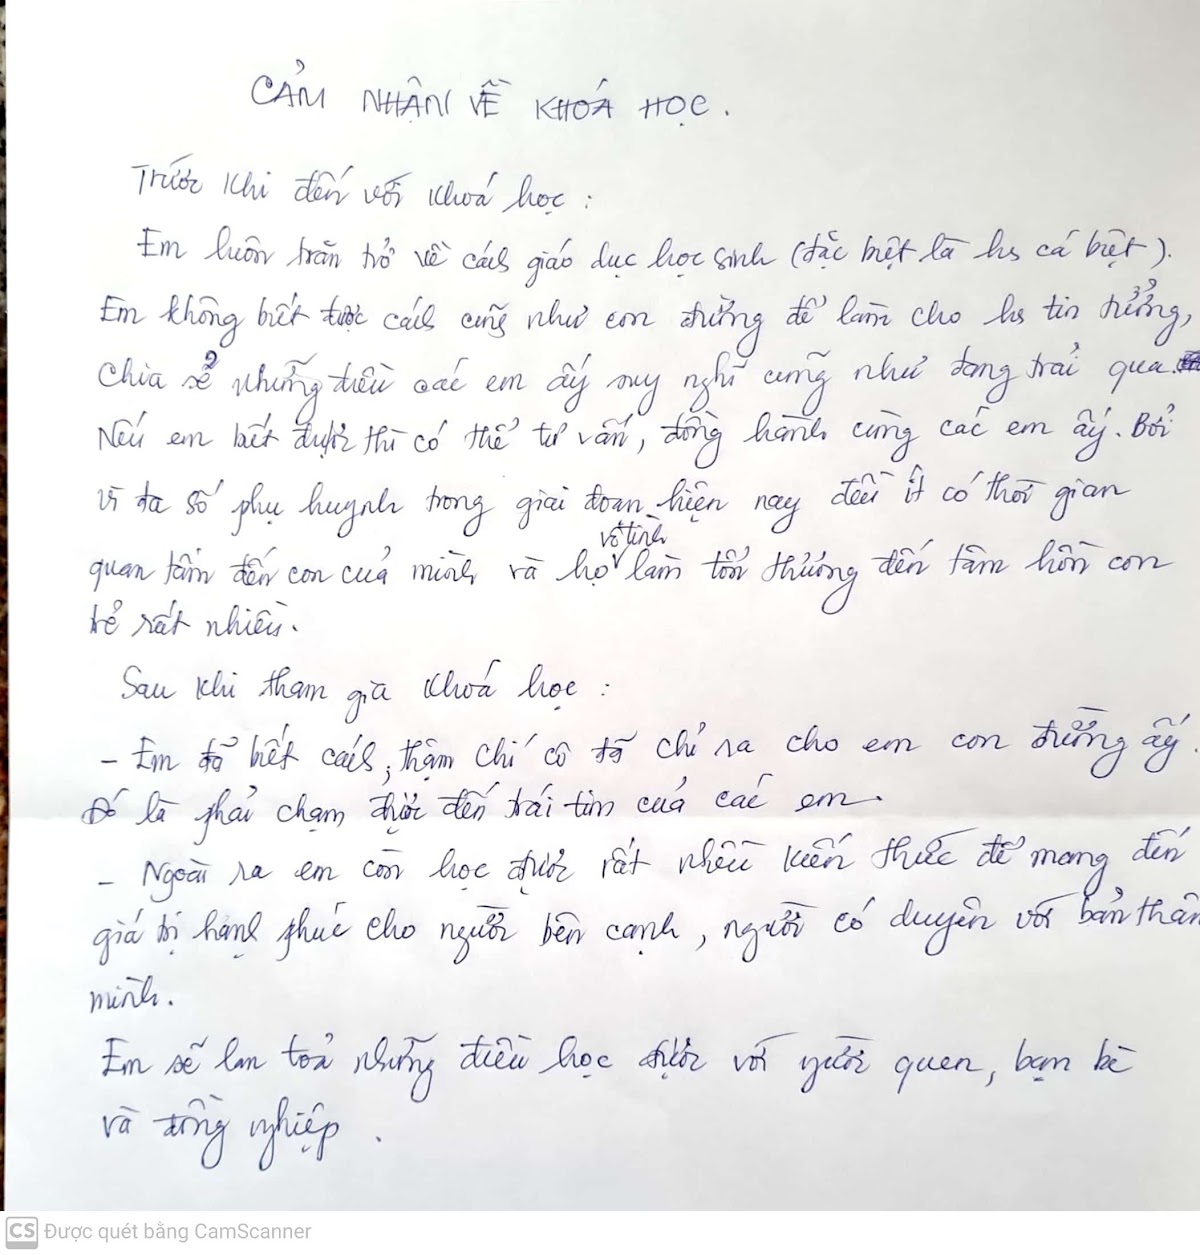 CẢM NHẬN VỀ KHOÁ HỌC.
Trước khi đến với khoá học :
Em luôn trăn trở về cách giáo dục học sinh (đặc biệt là hs cá biệt).
Em không biết được cách cũng như con đường để làm cho hs tin tưởng,
chia sẻ những điều các em ấy suy nghĩ cũng như đang trải qua.
Nếu em biết được thì có thể tư vấn, đồng hành cùng các em ấy. Bởi
vì đa số phụ huynh trong giai đoạn hiện nay đều ít có thời gian
quan tâm đến con của mình và họ vô tình làm tổn thương đến tâm hồn con
trẻ rất nhiều.
Sau khi tham gia khoá học :
- Em đã biết cách, thậm chí cô đã chỉ ra cho em con đường ấy.
Đó là phải chạm được đến trái tim của các em.
- Ngoài ra em còn học được rất nhiều kiến thức để mang đến
giá trị hạnh phúc cho người bên cạnh, người có duyên với bản thân
mình.
Em sẽ lan toả những điều học được với người quen, bạn bè
và đồng nghiệp.
CS Được quét bằng CamScanner